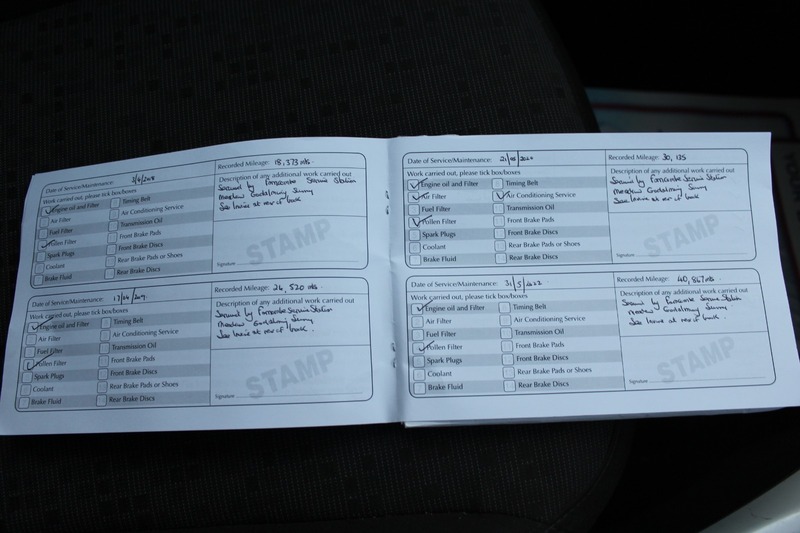 Date of Service/Maintenance: 2/6/2018
Recorded Mileage: 18,373 mls.
Work carried out, please tick box/boxes
Description of any additional work carried out
Engine oil and Filter
Timing Belt
Air Filter
Air Conditioning Service
Fuel Filter
Transmission Oil
Pollen Filter
Front Brake Pads
Spark Plugs
Front Brake Discs
Coolant
Rear Brake Pads or Shoes
Brake Fluid
Rear Brake Discs
Serviced by Farncombe Service Station
Meadrow Godalming Surrey
See invoice at rear of book
STAMP
Signature
Date of Service/Maintenance:
Recorded Mileage: 26,520 mls.
Work carried out, please tick box/boxes
Description of any additional work carried out
Engine oil and Filter
Timing Belt
Air Filter
Air Conditioning Service
Fuel Filter
Transmission Oil
Pollen Filter
Front Brake Pads
Spark Plugs
Front Brake Discs
Coolant
Rear Brake Pads or Shoes
Brake Fluid
Rear Brake Discs
Serviced by Farncombe Service Station
Meadrow Godalming Surrey
See invoice at rear of book.
STAMP
Signature
Date of Service/Maintenance:
Recorded Mileage: 30,
Work carried out, please tick box/boxes
Description of any additional work carried out
Engine oil and Filter
Timing Belt
Air Filter
Air Conditioning Service
Fuel Filter
Transmission Oil
Pollen Filter
Front Brake Pads
Spark Plugs
Front Brake Discs
Coolant
Rear Brake Pads or Shoes
Brake Fluid
Rear Brake Discs
Serviced by Farncombe Service Station
Meadrow Godalming Surrey
See invoice at rear of book
STAMP
Signature
Date of Service/Maintenance: 31/5/2022
Recorded Mileage: 40,867 mls.
Work carried out, please tick box/boxes
Description of any additional work carried out
Engine oil and Filter
Timing Belt
Air Filter
Air Conditioning Service
Fuel Filter
Transmission Oil
Pollen Filter
Front Brake Pads
Spark Plugs
Front Brake Discs
Coolant
Rear Brake Pads or Shoes
Brake Fluid
Rear Brake Discs
Serviced by Farncombe Service Station
Meadrow Godalming Surrey
See invoice at rear of book.
STAMP
Signature